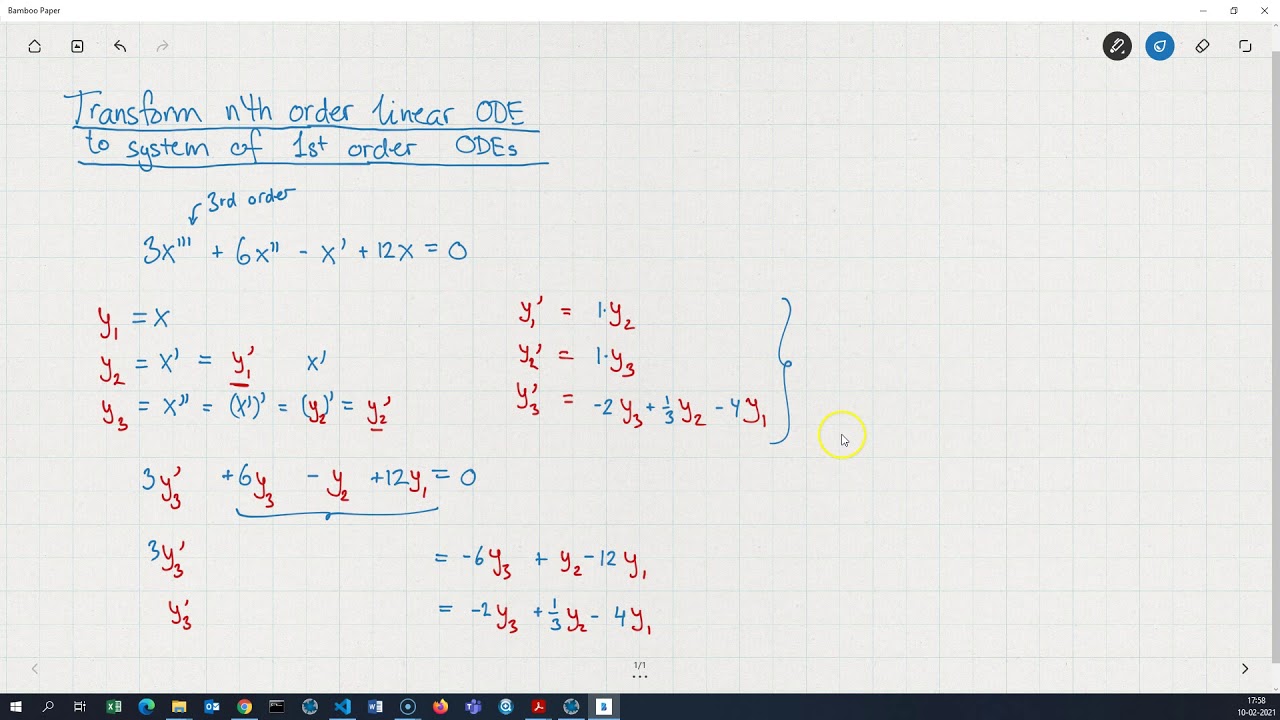 Bamboo Paper
Transform n4th order linear ODE
to system of 1st order ODEs
3rd order
3x''' + 6x'' - x' + 12x = 0
y₁ = x
y₂ = x' = y₁' x'
y₃ = x'' = (x')' = (y₂)' = y₂'
y₁' = 1·y₂
y₂' = 1·y₃
y₃' = -2y₃ + 1/3 y₂ - 4y₁
3y₃' + 6y₃ - y₂ + 12y₁ = 0
3y₃' = -6y₃ + y₂ - 12y₁
y₃' = -2y₃ + 1/3 y₂ - 4y₁
1/1
17:58
10-02-2021